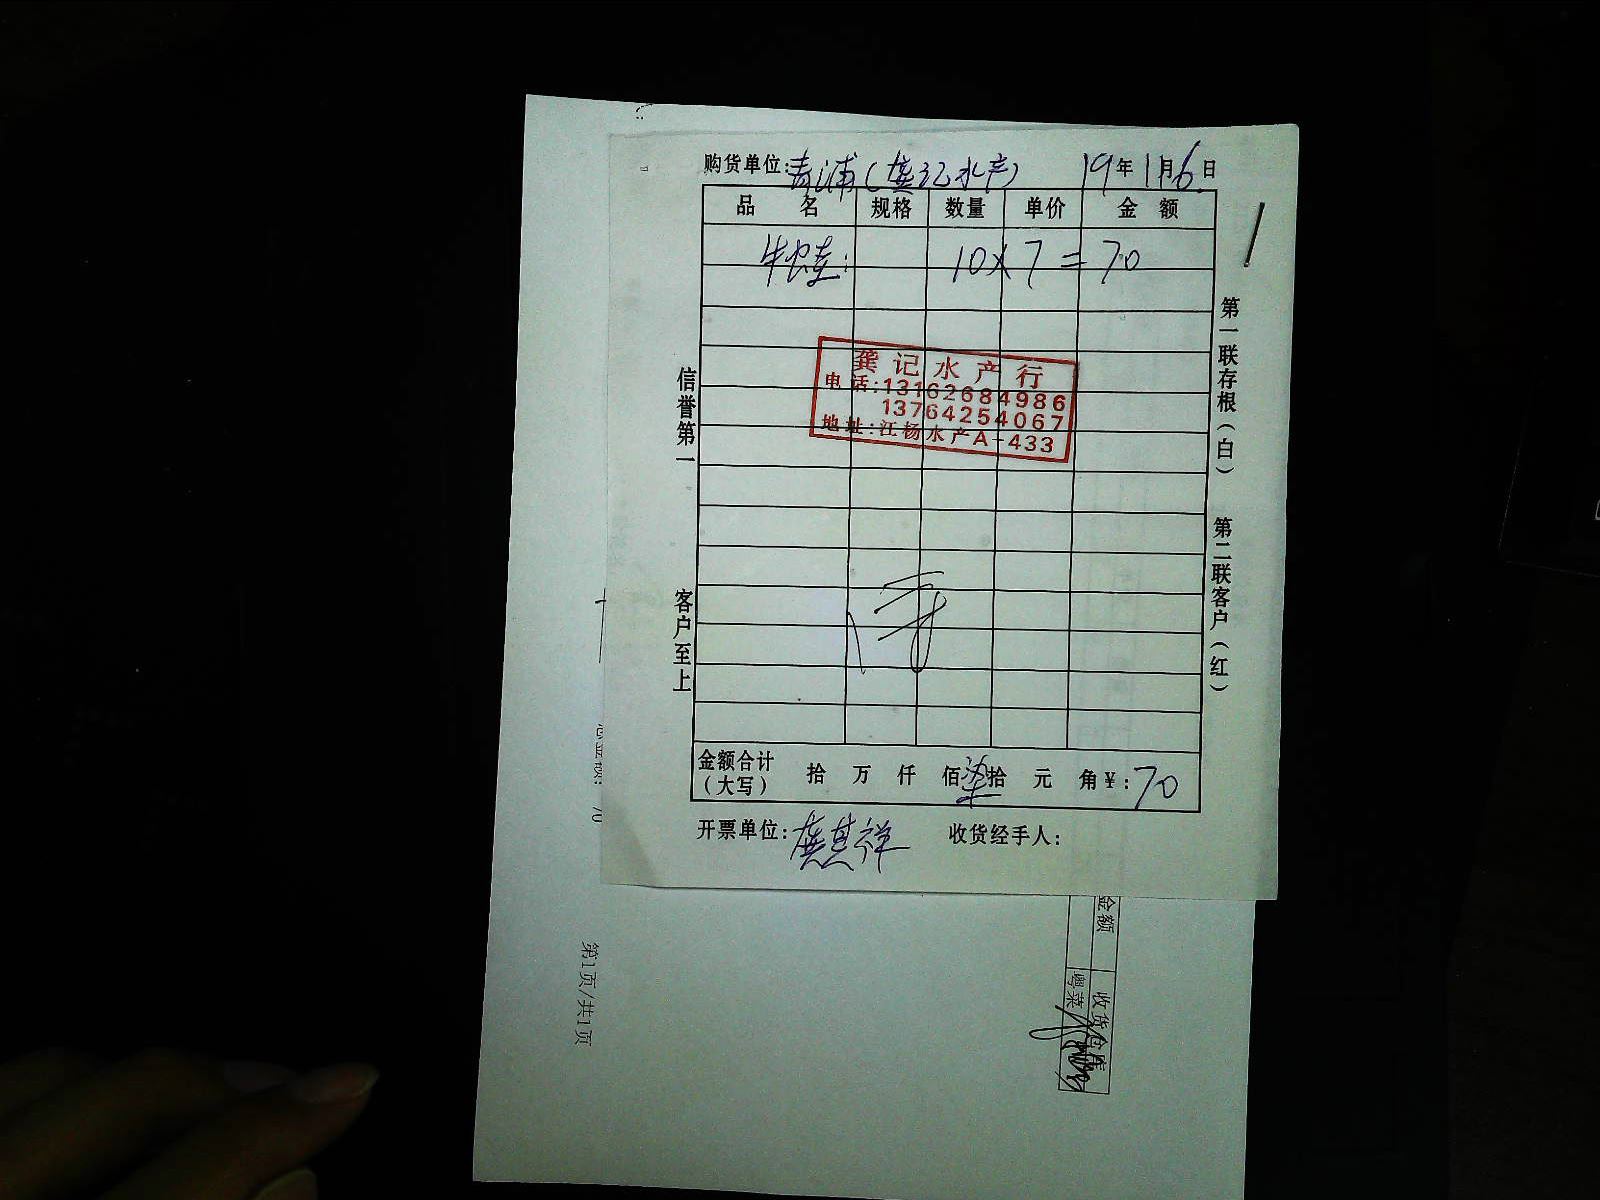 购货单位:青浦(龚记水产) 19年11月6日
品名 规格 数量 单价 金额
牛蛙: 10×7=70
龚记水产行
电话:13162684986
13764254067
地址:江杨水产A-433
信誉第一 客户至上
第一联存根(白) 第二联客户(红)
金额合计(大写) 拾 万 仟 佰 柒拾 元 角¥:70
开票单位:龚其祥 收货经手人:
金额
收货仓库
粤菜
第1页/共1页